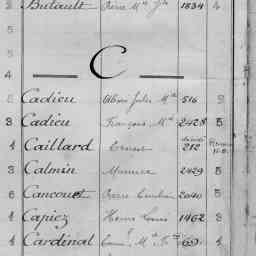 2 Butault Pierre Mie Jh 1834 4
C
5 Cadieu Jules Mie 516 9
3 Cadieu François Mie 2428 5
1 Caillard Ernest 212
3 Calmin Maurice 2429 5
6 Cancouet Pierre 2040 5
1 Capiez Henri Louis 1462 3
1 Cardinal Mie 69 4